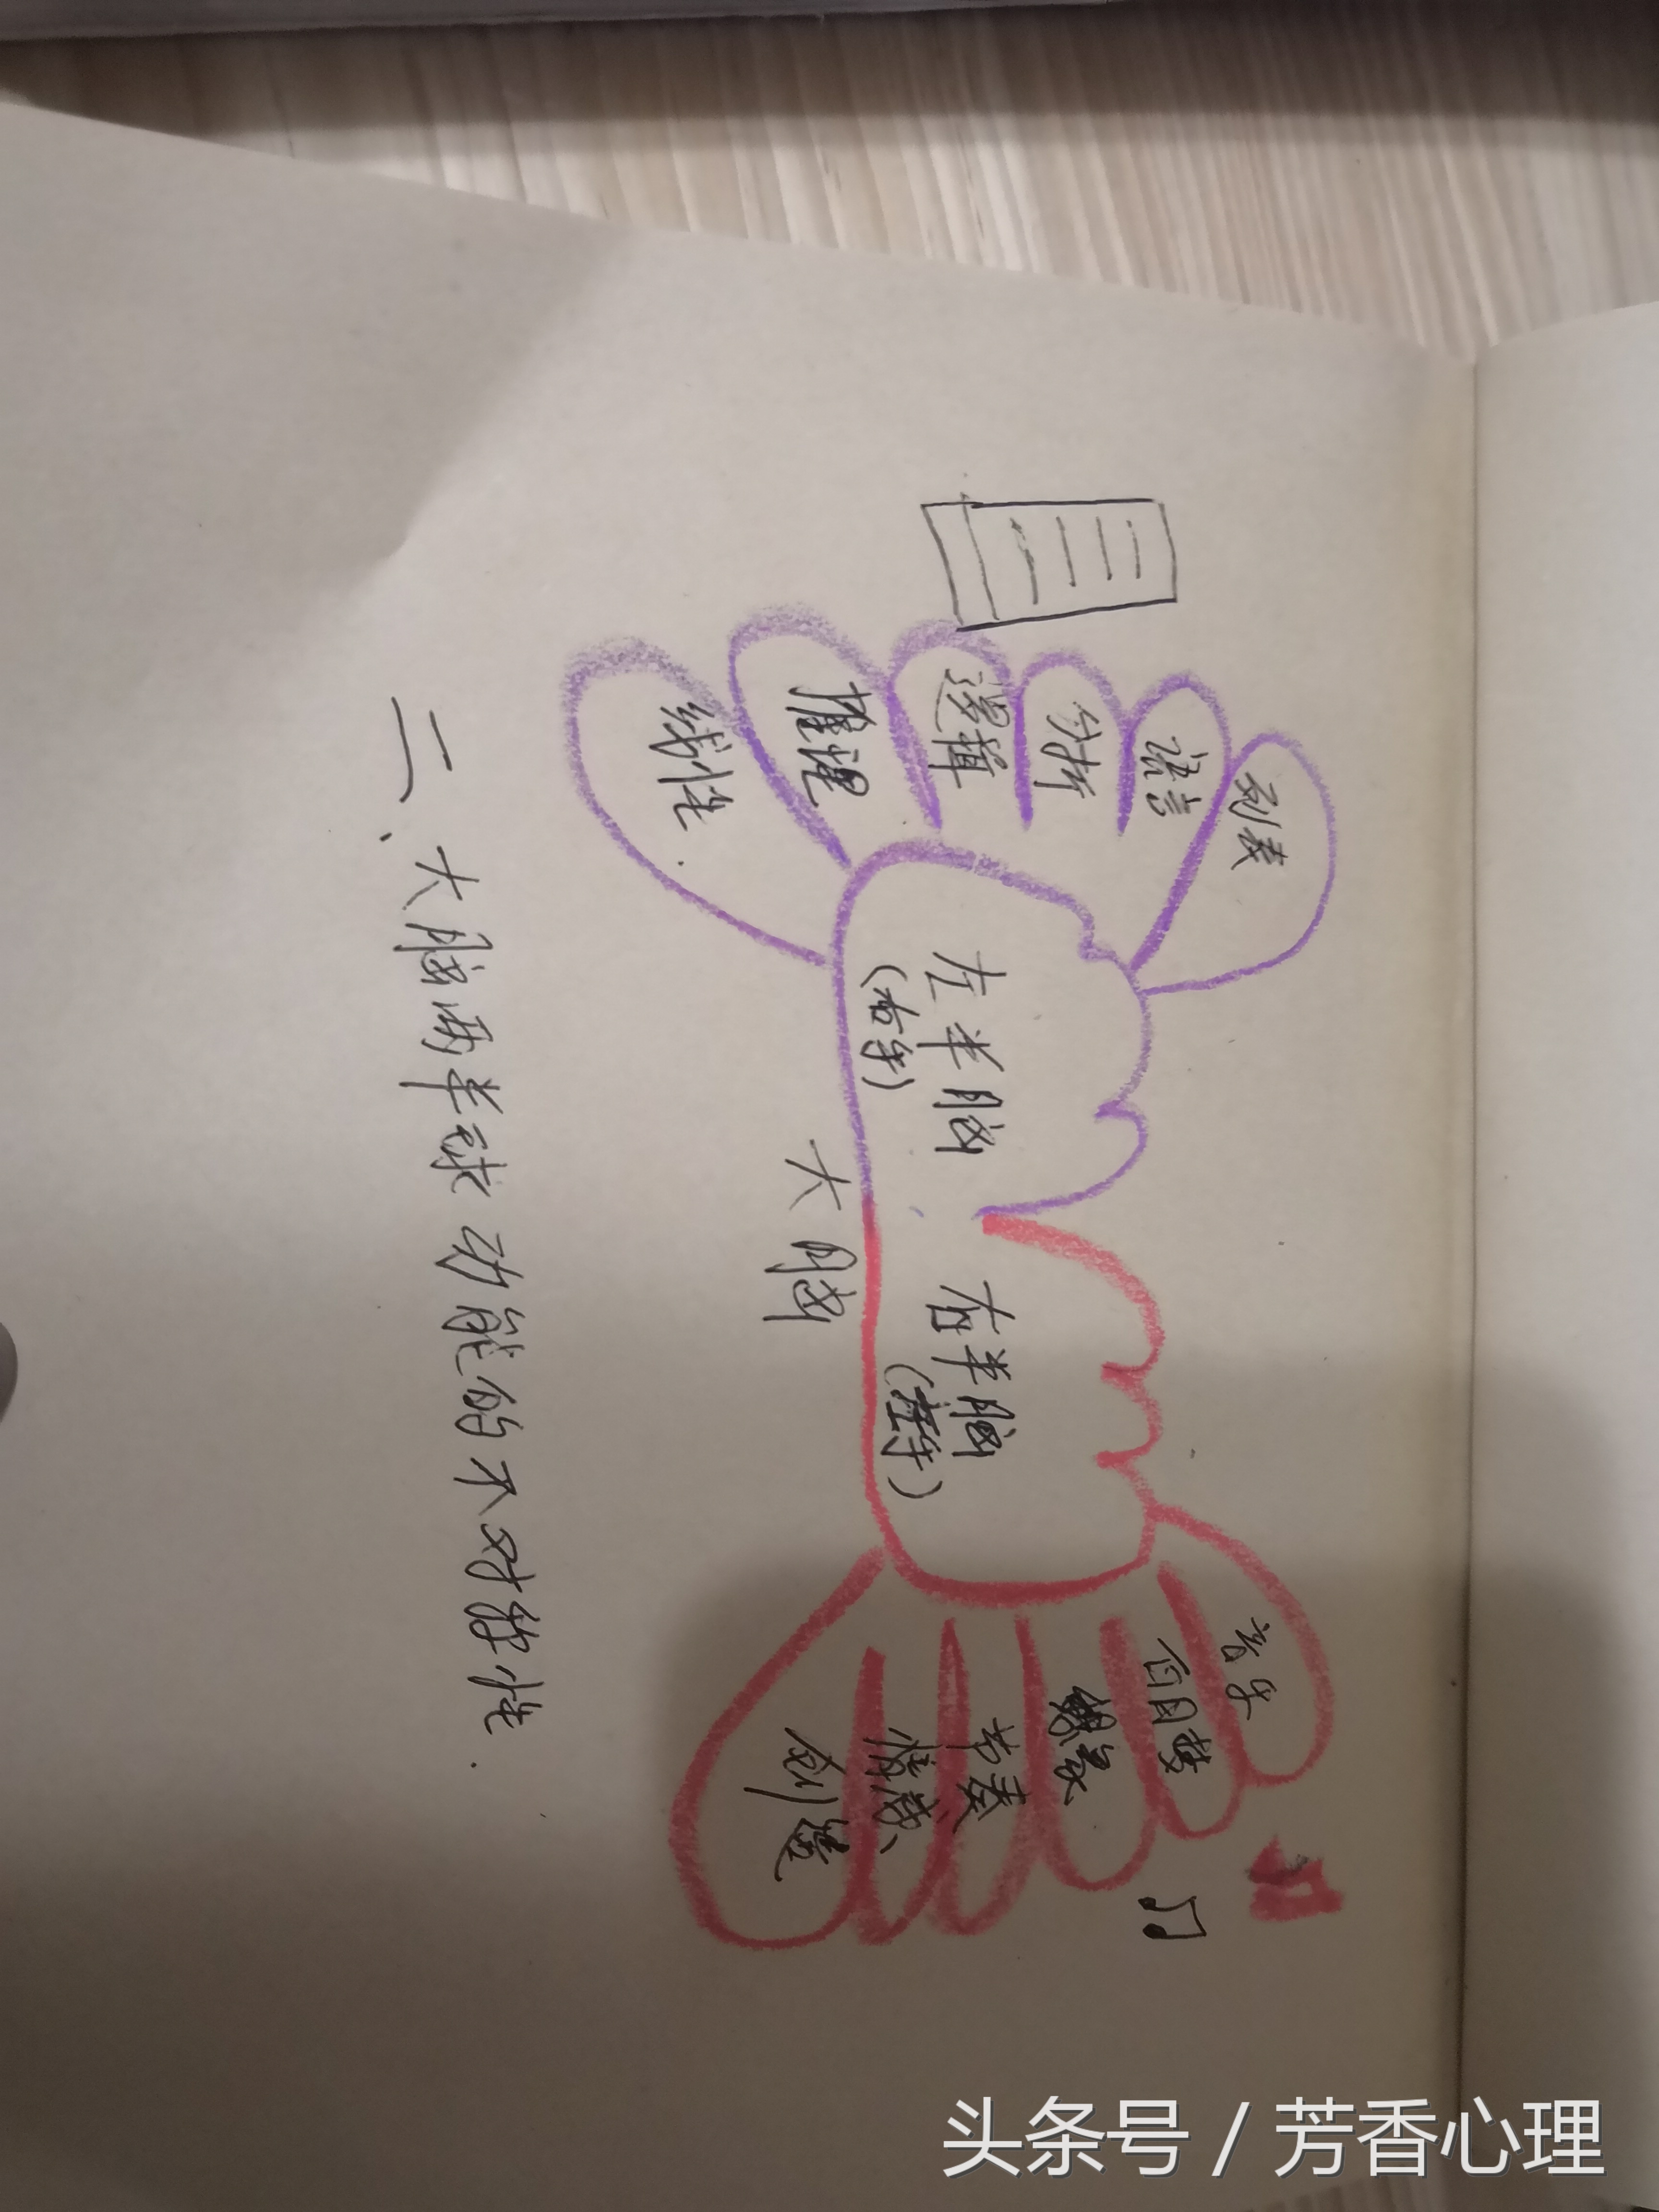 列表
语言
分析
逻辑
推理
线性
左半脑
(右手)
右半脑
(左手)
大脑
音乐
白日梦
想象
节奏
情感
创造
二、大脑两半球功能的不对称性.
头条号 / 芳香心理